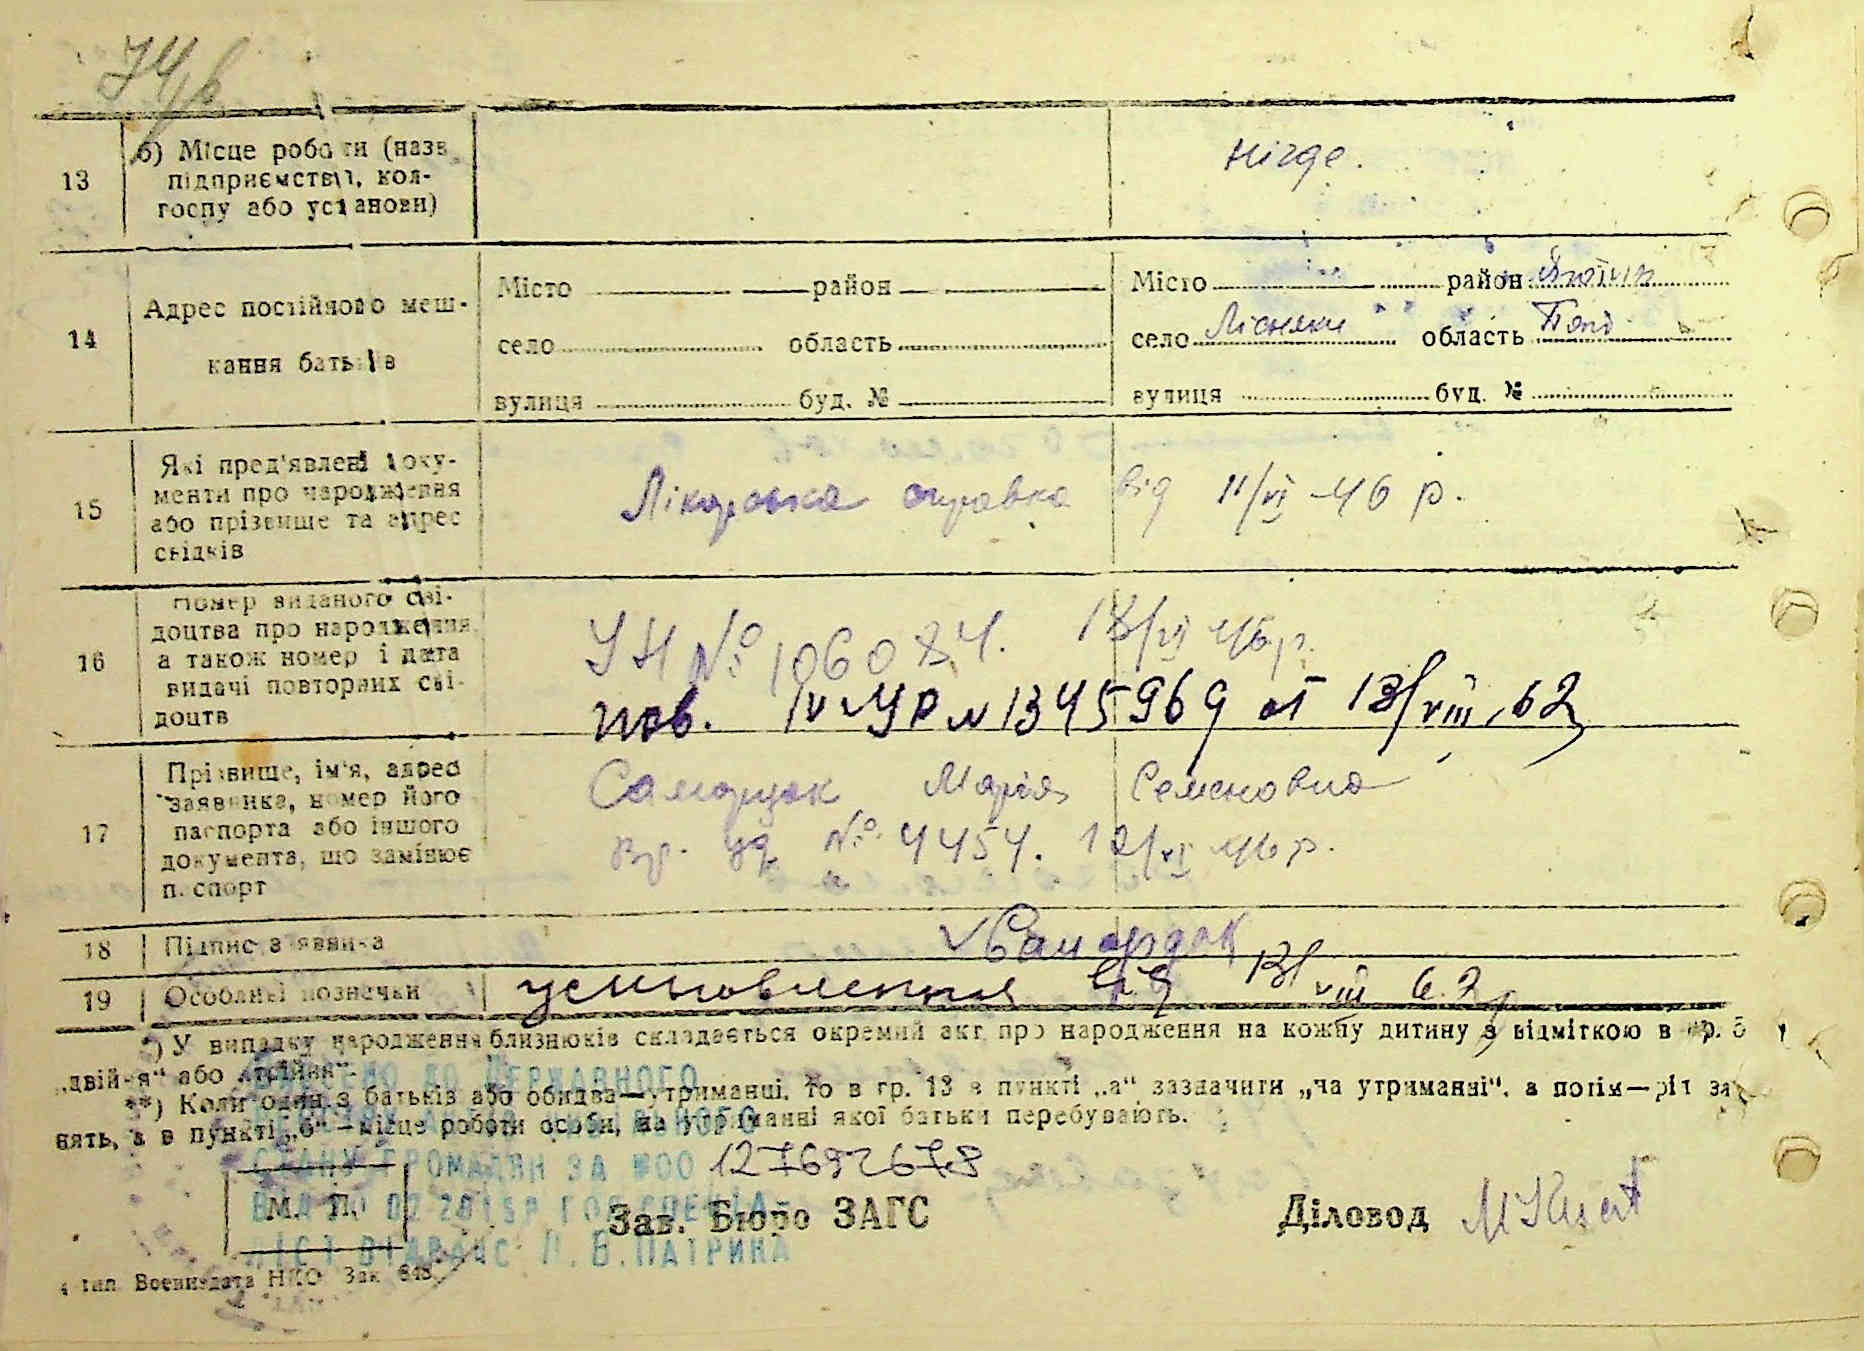 13
б) Місце роботи (назв
підприємства, кол-
госпу або установи)
нігде.
14
Адрес постійного меш-
кання батьків
Місто район
село область
вулиця буд. №
Місто район Яготин
село Лісняки область Полт
вулиця буд. №
15
Які пред'явлені доку-
менти про народження
або прізвище та адрес
свідків
Лікарська справка від 11/VI 46 р.
16
Номер виданого сві-
доцтва про народження
а також номер і дата
видачі повторних сві-
доцтв
УН № 106084. 13/VI 46 р.
пов. IV-УР № 1345969 от 13/VIII, 62
17
Прізвище, ім'я, адрес
заявника, номер його
паспорта або іншого
документа, що замінює
паспорт
Самардак Марія Семеновна
вр. уд. № 4454. 12/VI 46 р.
18 Підпис заявника
Самардак
19 Особливі позначки
усиновлення від 13/VIII 62 р
*) У випадку народження близнюків складається окремий акт про народження на кожну дитину з відміткою в гр. 5
„двійня“ або „трійня“.
**) Коли один з батьків або обидва—утриманці, то в гр. 13 в пункті „а“ зазначити „на утриманні“, а потім—рід за-
нять, а в пункті „б“ — місце роботи особи, на утриманні якої батьки перебувають.
ВНЕСЕНО ДО ДЕРЖАВНОГО
РЕЄСТРУ АКТІВ ЦИВІЛЬНОГО
СТАНУ ГРОМАДЯН ЗА №00 127692678
М. П.
Зав. Бюро ЗАГС
Діловод
ЛІСТ ВІДРАЦС Л.В.ПАТРИКА
4 тип. Воениздата НКО Зак 648